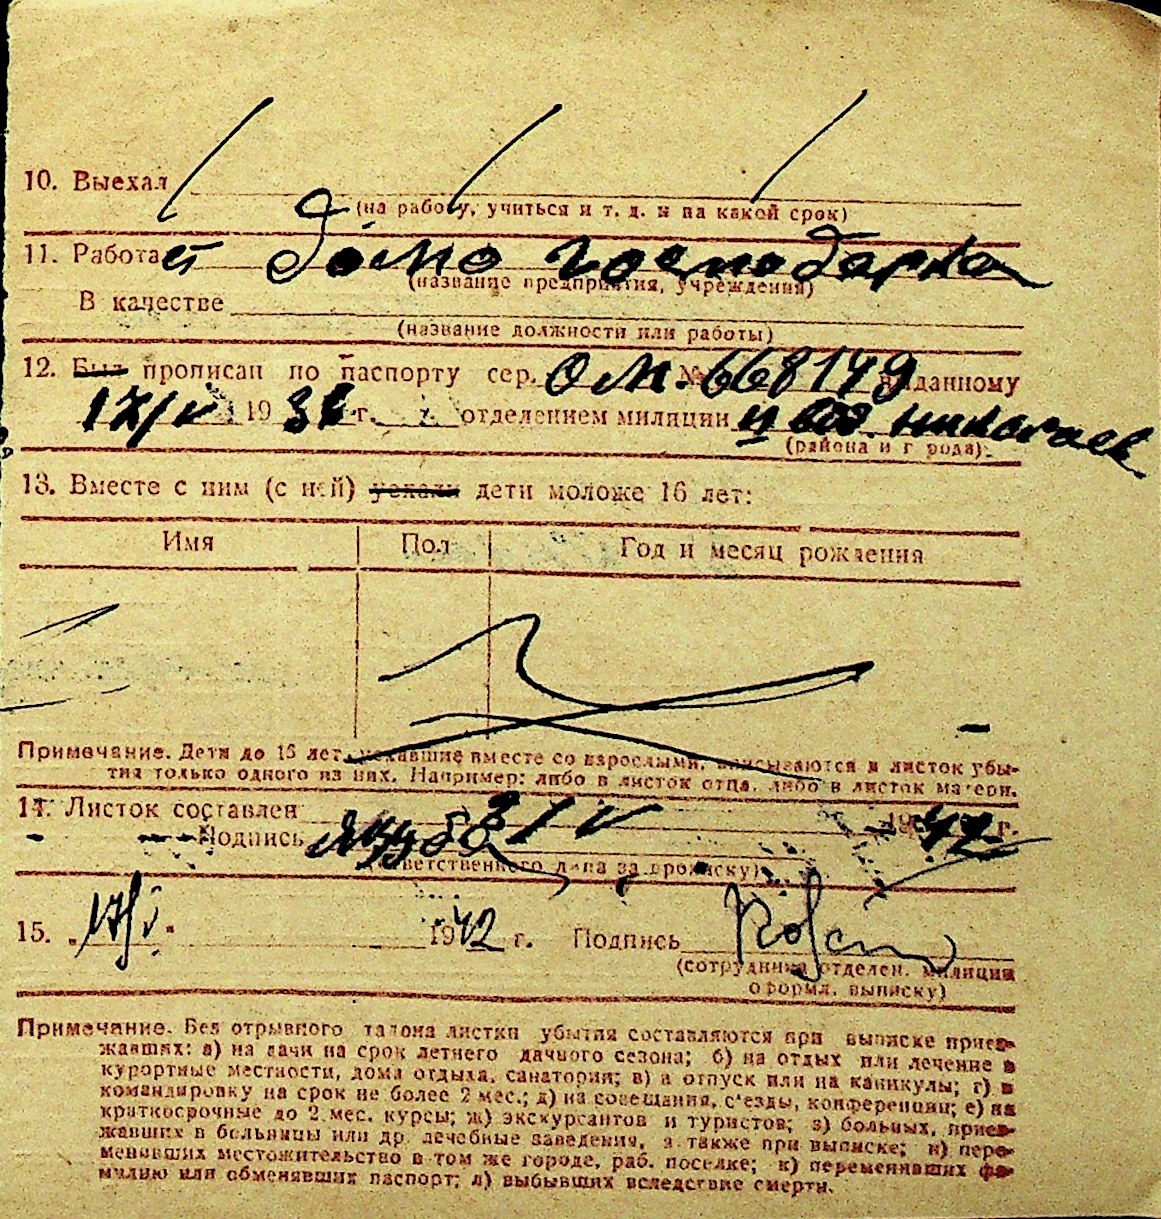 10. Выехал
(на работу, учиться и т. д. и на какой срок)
11. Работает домо господарка
(название предприятия, учреждения)
В качестве
(название должности или работы)
12. Был прописан по паспорту сер. ОМ. № 668149 выданному
17/V 1936 г. отделением милиции
(района и города).
13. Вместе с ним (с ней) уехали дети моложе 16 лет:
Имя Пол Год и месяц рождения
Примечание. Дети до 15 лет, уехавшие вместе со взрослыми, вписываются в листок убы-
тия только одного из них. Например: либо в листок отца, либо в листок матери.
14. Листок составлен 1942 г.
Подпись
(ответственного лица за прописку)
15. „17/V" 1942 г. Подпись
(сотрудника отделен. милиции
оформл. выписку)
Примечание. Без отрывного талона листки убытия составляются при выписке приез-
жавших: а) на дачи на срок летнего дачного сезона; б) на отдых или лечение в
курортные местности, дома отдыха, санатории; в) в отпуск или на каникулы; г) в
командировку на срок не более 2 мес.; д) на совещания, с'езды, конференции; е) на
краткосрочные до 2 мес. курсы; ж) экскурсантов и туристов; з) больных, приез-
жавших в больницы или др. лечебные заведения, а также при выписке; и) пере-
менивших местожительство в том же городе, раб. поселке; к) переменивших фа-
милию или обменявших паспорт; л) выбывших вследствие смерти.